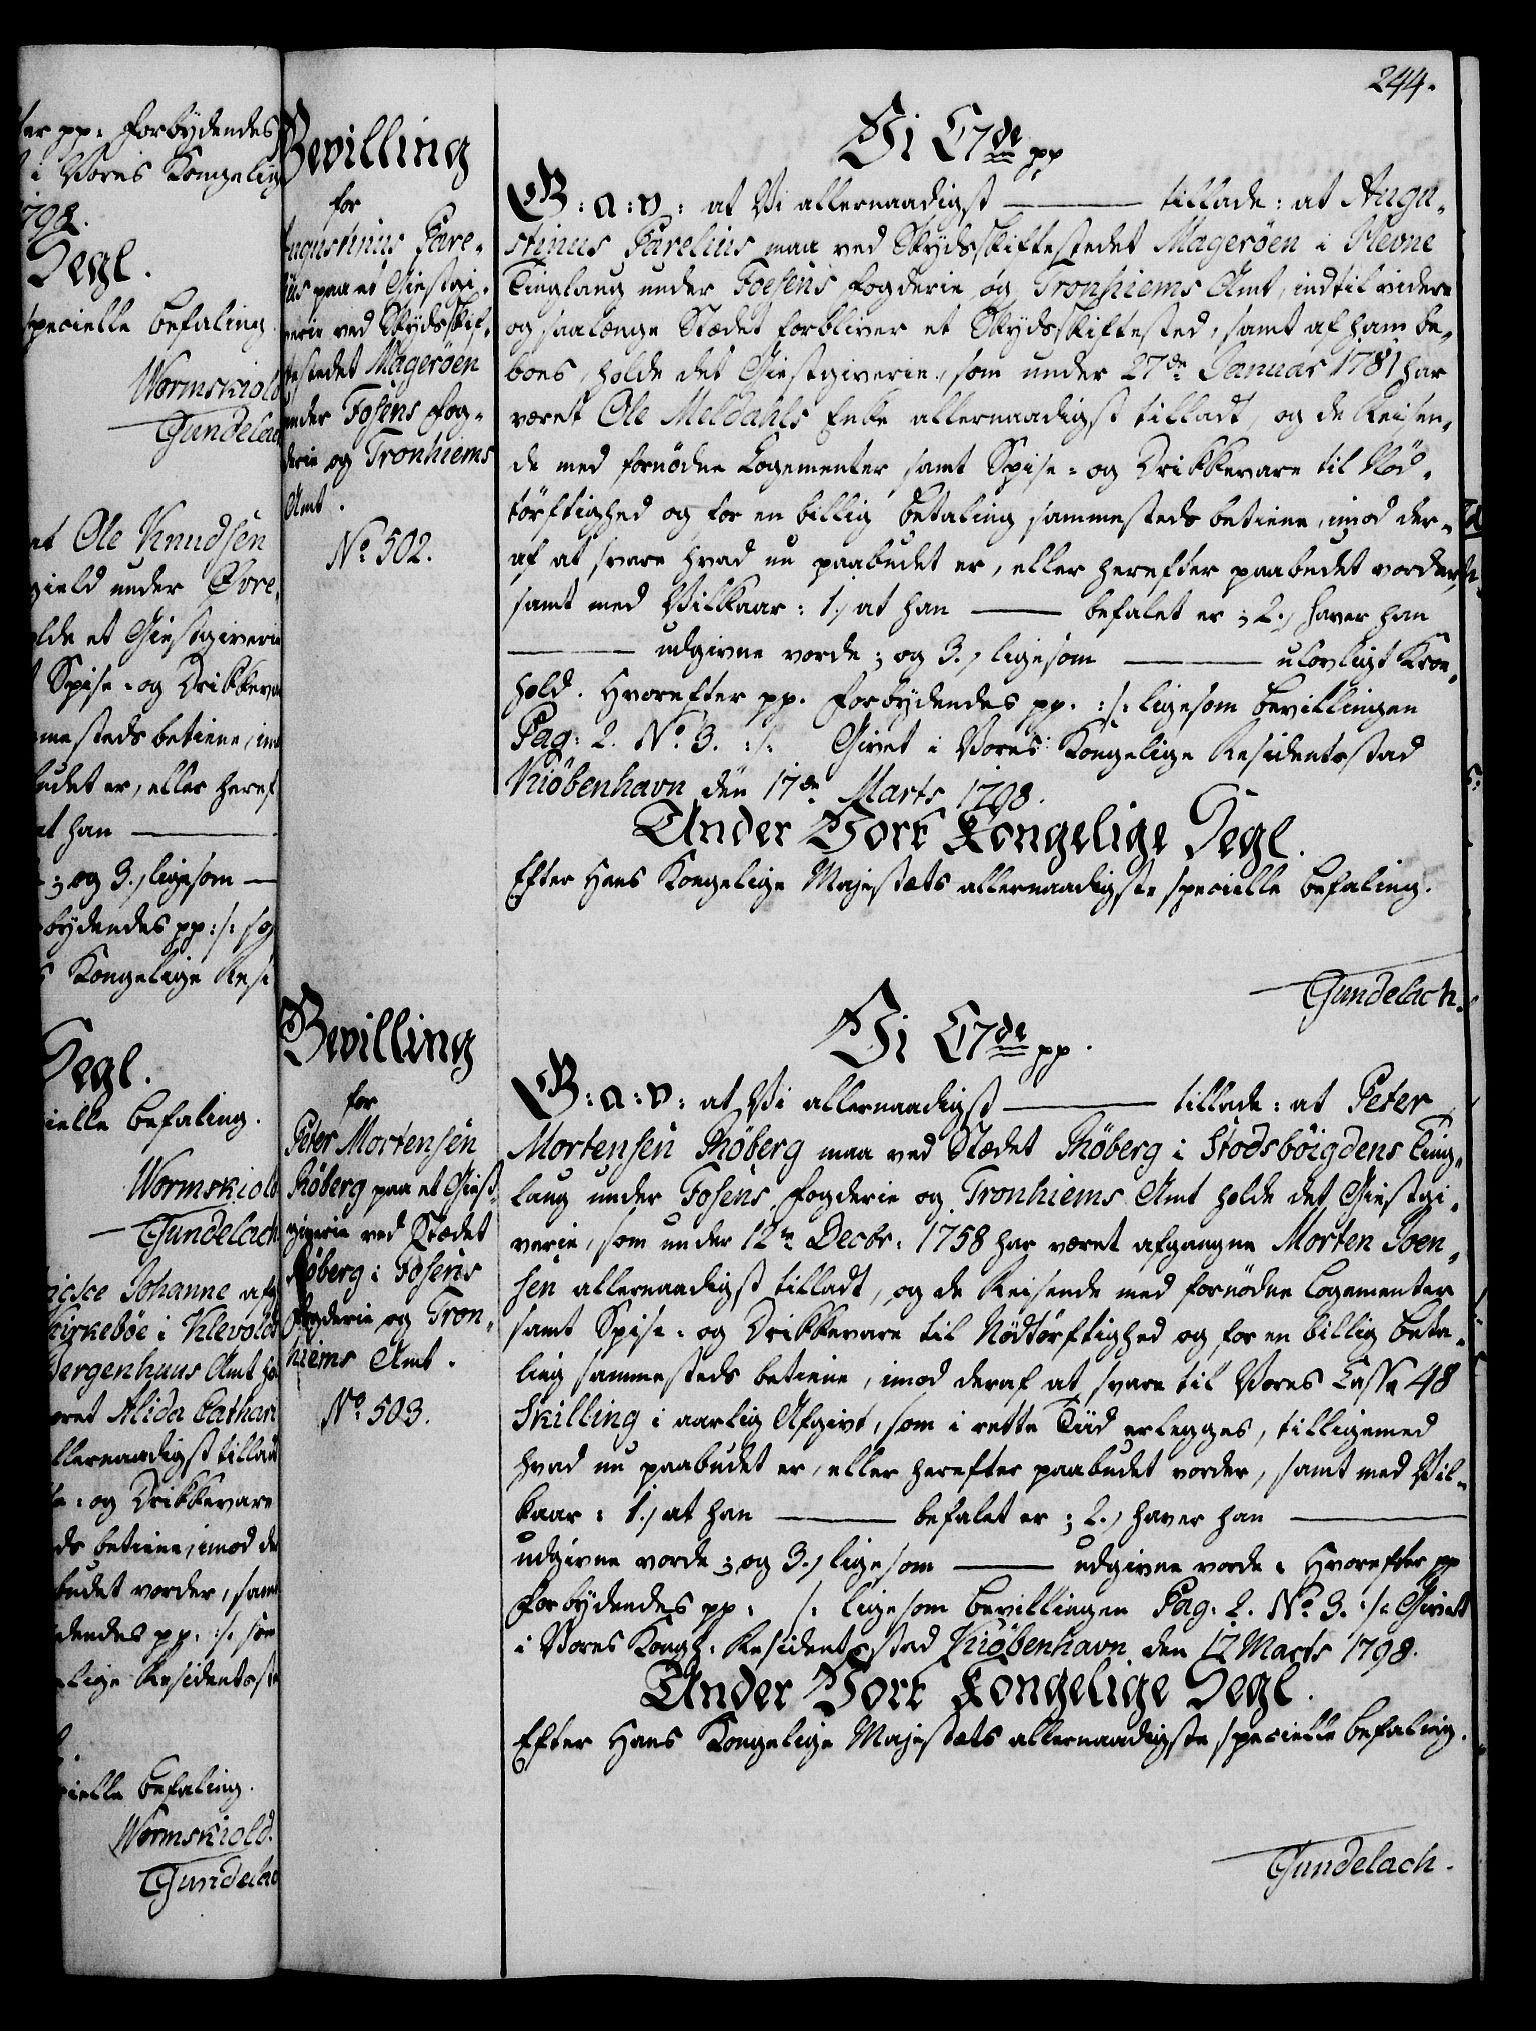 244.
ter pp: Forbydendes
i Vores Kongelig
1798.
Segl.
specielle Befaling.
Wormskiold
Gundelach
et Ole Knudsen
gield under Øvre
olde et Giestgiverie
Spise- og Drikkeva
mmesteds betiene, im
budet er, eller heref
at han ———
; og 3.) ligesom —
bydendes pp: /: so
s Kongelige Resi
Segl.
cielle Befaling.
Wormskiold
Gundelach
Johanne afg
Kirkebøe i Klevold
Bergenhuus Amt ho
været Alida Cathari
llernaadigst tillad
se- og Drikkevare
ds betiene, imod de
budet vorder, sam
dendes pp: /: som
lige Residentsst
cielle Befaling.
Wormskiold.
Gundelac
Bevilling
for
Augustinus Pare-
lius paa et Giestgi-
verie ved Skydsskif-
testedet Magerøen
under Fosens Fog-
derie og Tronhiems
Amt.
No. 502.
Vi C7de pp
G: a: v: at Vi allernaadigst ——— tillade: at Augu-
stinus Parelius maa ved Skydsskiftestedet Magerøen i Hevne
Tinglaug under Foesens Fogderie og Tronhiems Amt, indtil videre
og saalænge Stædet forbliver et Skydsskiftested, samt af ham be-
boes, holde det Giestgiverie, som under 27de Januar 1781 har
været Ole Meldahls Enke allernaadigst tilladt, og de Reisen-
de med fornødne Logementer samt Spise- og Drikkevare til Nød-
tørftighed og for en billig Betaling sammesteds betiene, imod der-
af at svare hvad nu paabudet er, eller herefter paabudet vorder,
samt med Vilkaar: 1.) at han ——— befalet er; 2.) haver han
——— udgivne vorde; og 3.) ligesom ——— ulovligt Kroe-
hold. Hvorefter pp. Forbydendes pp. :/: ligesom Bevillingen
Pag: 2. No. 3. :/: Givet i Vores Kongelige Residentsstad
Kiøbenhavn den 17de Marts 1798.
Under Vort Kongelige Segl.
Efter Hans Kongelige Majestæts allernaadigste specielle Befaling.
Gundelach.
Bevilling
for
Peter Mortensen
Røberg paa et Giest-
giverie ved Stædet
Røberg i Fosens
Fogderie og Tron-
hiems Amt.
No. 503.
Vi C7de pp.
G: a: v: at Vi allernaadigst ——— tillade: at Peter
Mortensen Røberg maa ved Stædet Røberg i Stodsbøigdens Ting-
laug under Fosens Fogderie og Tronhiems Amt holde det Giestgi-
verie, som under 12te Decbr: 1758 har været afgangne Morten Joen-
sen allernaadigst tilladt, og de Reisende med fornødne Logementer
samt Spise- og Drikkevare til Nødtørftighed og for en billig Beta-
ling sammesteds betiene, imod deraf at svare til Vores Cassa 48
Skilling i aarlig Afgivt, som i rette Tiid erlegges, tilligemed
hvad nu paabudet er, eller herefter paabudet vorder, samt med Vil-
kaar: 1.) at han ——— befalet er; 2.) haver han ———
udgivne vorde; og 3.) ligesom ——— udgivne vorde. Hvorefter pp
Forbydendes pp: /: ligesom Bevillingen Pag: 2. No. 3. :/: Givet
i Vores Kongl: Residentsstad Kiøbenhavn, den 17 Marts 1798.
Under Vort Kongelige Segl.
Efter Hans Kongelige Majestæts allernaadigste specielle Befaling.
Gundelach.